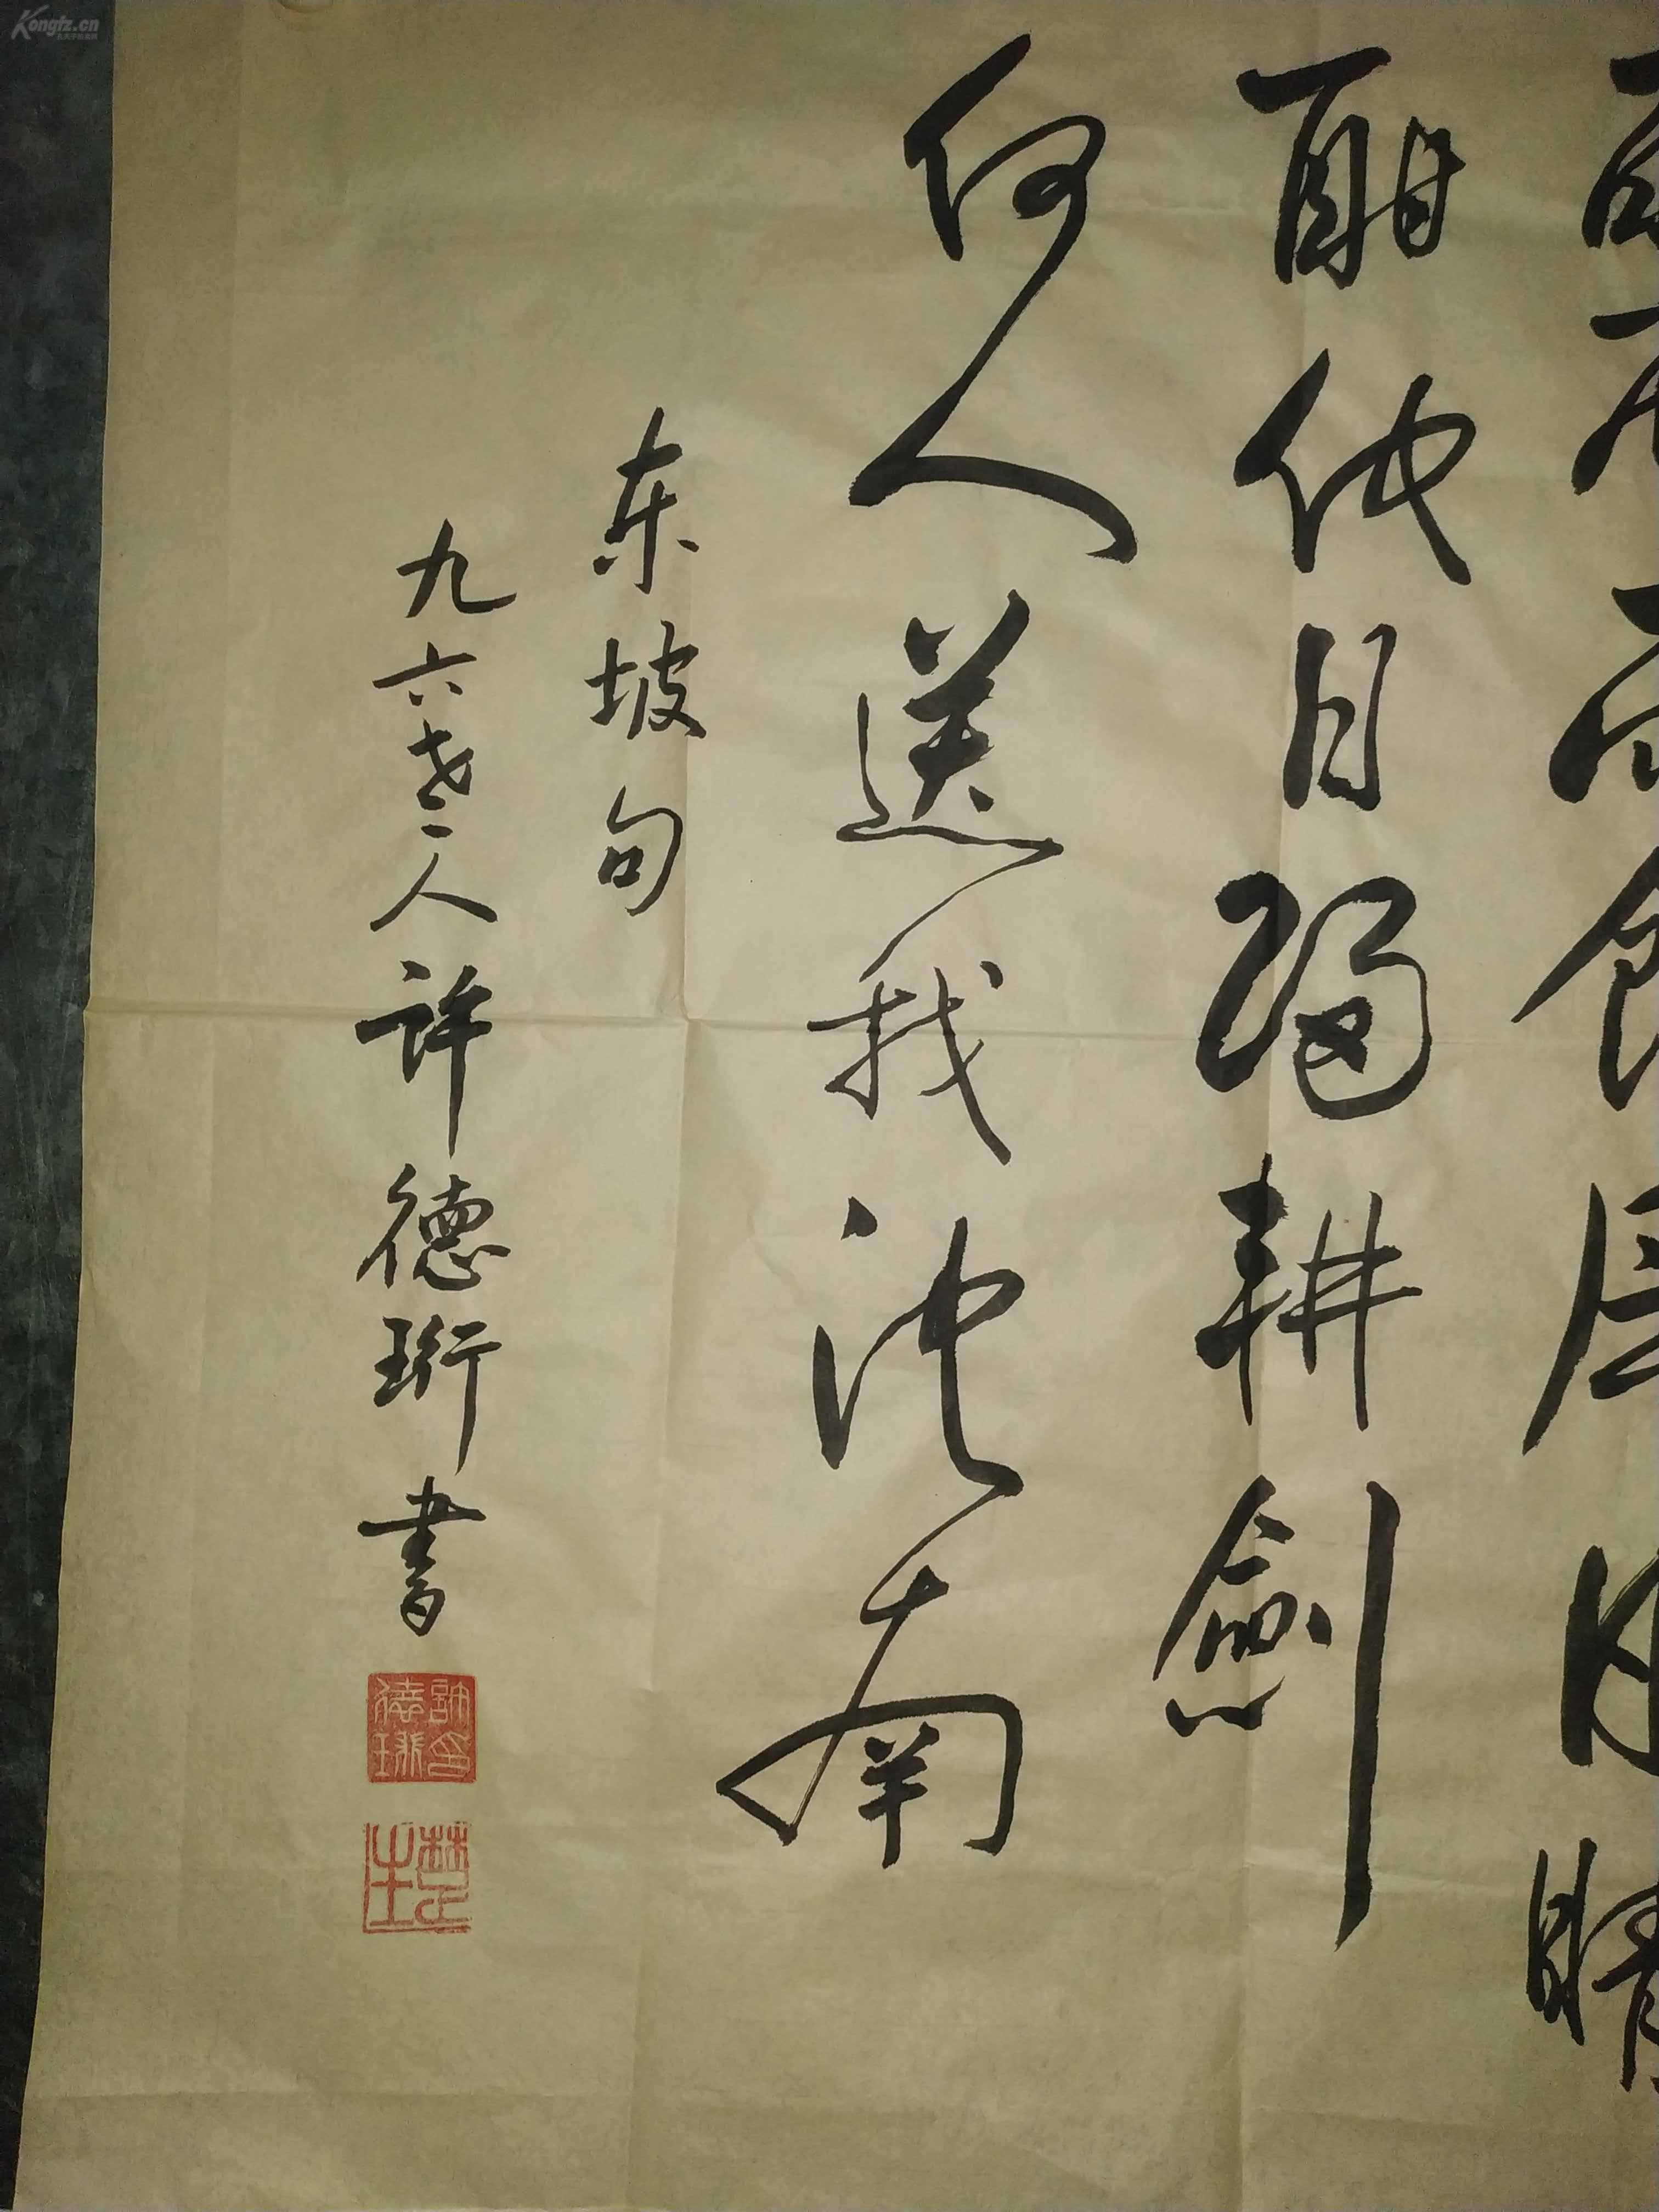 酣他日歸耕劍
何人送我池南
东坡句
九六老人許德珩書
許德珩印
楚生
Kongfz.cn